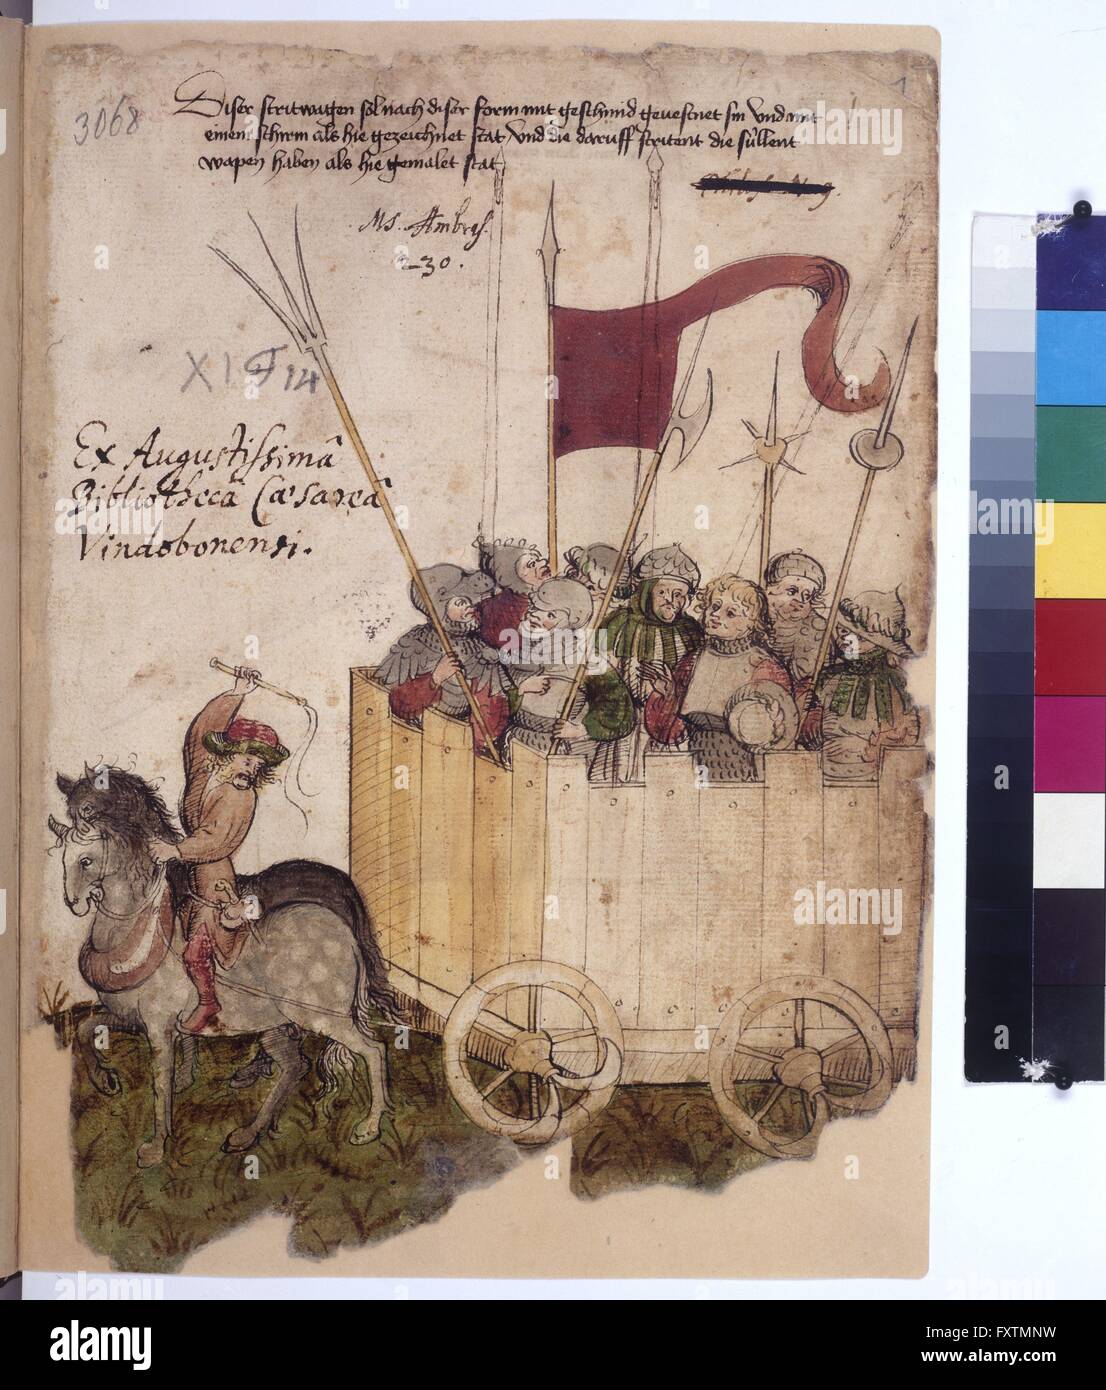 3068
1
Diser stritwagen sol nach diser form mit geschind gevestnet sin vnd mit
einem schirm als hie gezeichnet stat vnd die daruff stritent die süllent
wapen haben als hie gemalet stat
Ms. Ambras.
230.
XI F 14
Ex Augustissimâ
Bibliothecâ Cæsareâ
Vindobonensi.
alamy
Image ID: FXTMNW
www.alamy.com